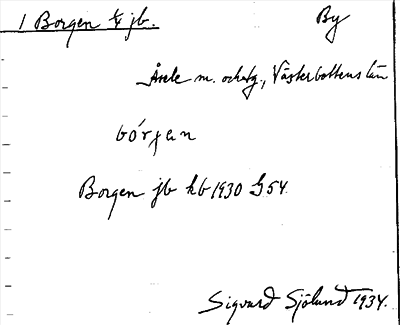 1 Borgen ¼ jb. By
Åsele m. och tg., Västerbottens län
bórjan
Borgen jb kb 1930 G54.
Sigvard Sjölund 1934.